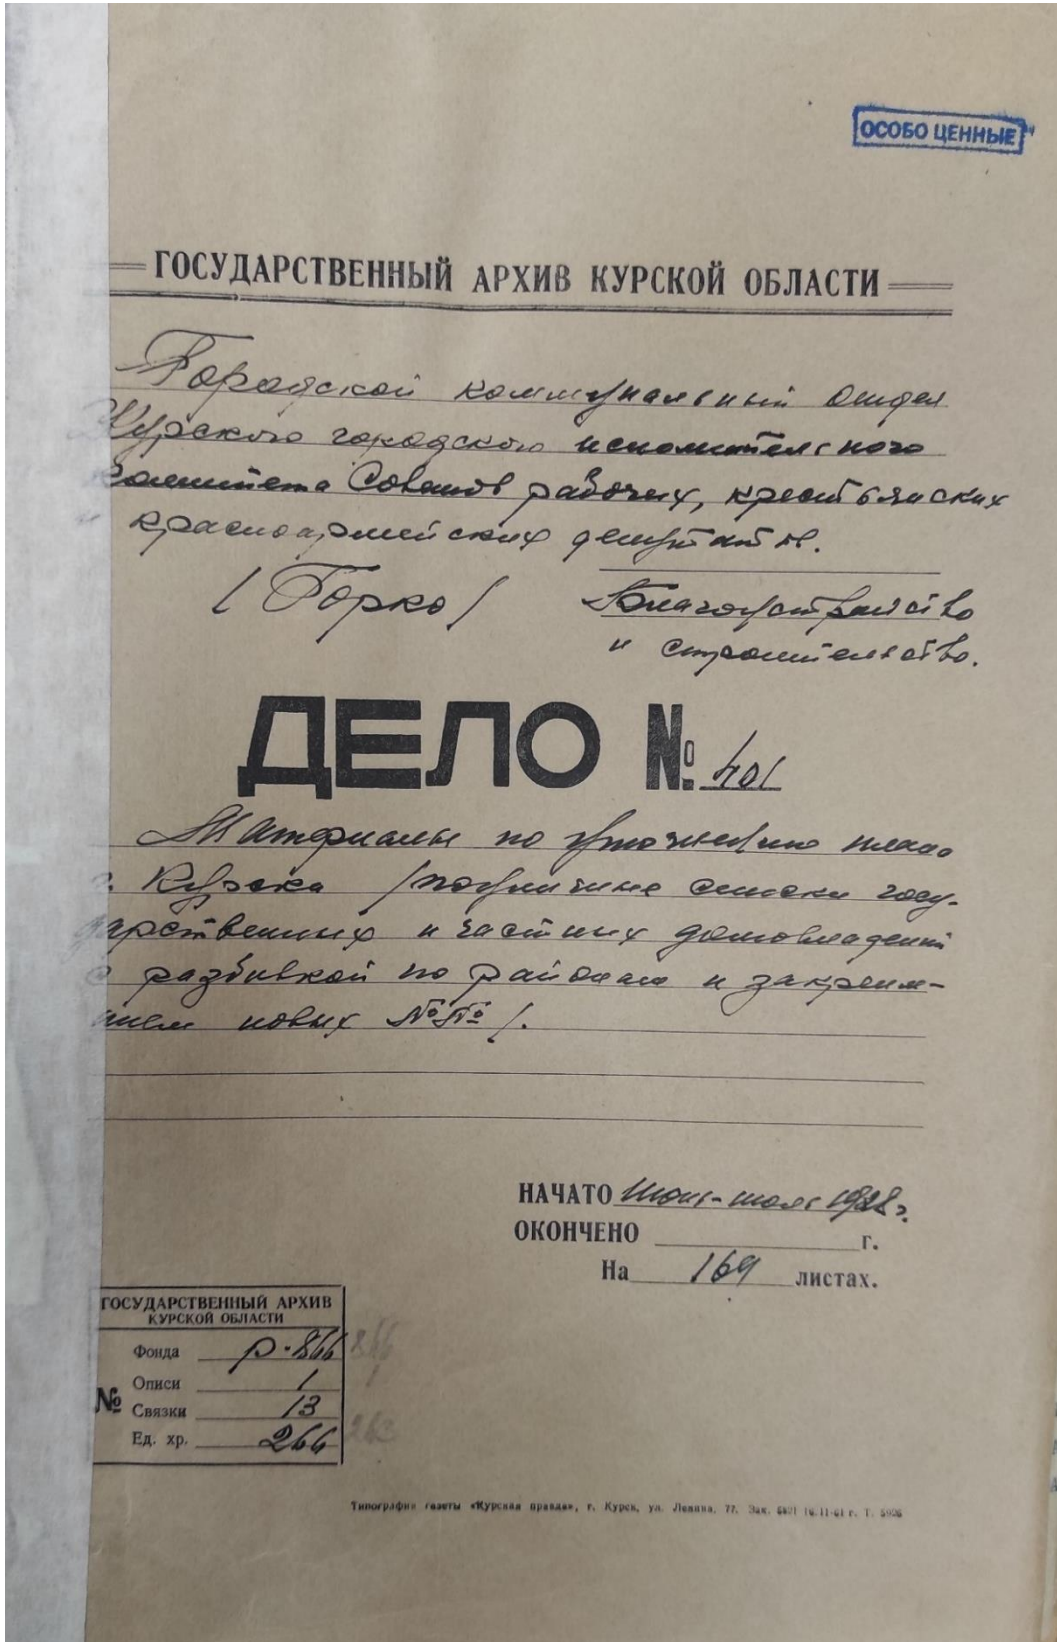 ОСОБО ЦЕННЫЕ
ГОСУДАРСТВЕННЫЙ АРХИВ КУРСКОЙ ОБЛАСТИ
Городской коммунальный отдел
Курского городского исполнительного
комитета Советов рабочих, крестьянских
и красноармейских депутатов.
/ Горко /
Благоустройство
и строительство.
ДЕЛО № 401
Материалы по уточнению плана
г. Курска /поуличные списки госу-
дарственных и частных домовладений
с разбивкой по районам и закрепле-
нием новых №№ /.
НАЧАТО Июнь-июль 1928 г.
ОКОНЧЕНО г.
На 169 листах.
ГОСУДАРСТВЕННЫЙ АРХИВ
КУРСКОЙ ОБЛАСТИ
Фонда р-866
Описи 1
№ Связки 13
Ед. хр. 266
Типография газеты «Курская правда», г. Курск, ул. Ленина, 77. Зак.